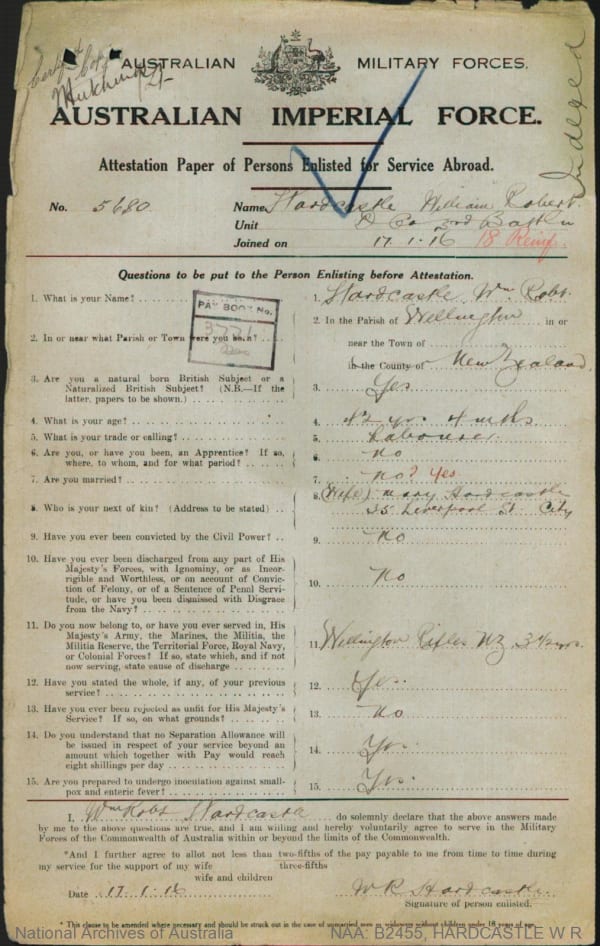 Certif d Copy
Hutchings
Indexed
AUSTRALIAN MILITARY FORCES.
AUSTRALIAN IMPERIAL FORCE.
Attestation Paper of Persons Enlisted for Service Abroad.
No. 5680 Name Hardcastle William Robert.
Unit D Co 3rd Battn
Joined on 17.1.16 18 Reinf.
Questions to be put to the Person Enlisting before Attestation.
PAY BOOK No.
1. What is your Name? 1. Hardcastle Wm Robt.
2. In or near what Parish or Town were you born? 2. In the Parish of Wellington in or
near the Town of
in the County of New Zealand
3. Are you a natural born British Subject or a
Naturalized British Subject? (N.B.—If the
latter, papers to be shown.) 3. Yes
4. What is your age? 4. 42 yrs 4 mths
5. What is your trade or calling? 5. Labourer
6. Are you, or have you been, an Apprentice? If so,
where, to whom, and for what period? 6. No
7. Are you married? 7. No? Yes
8. Who is your next of kin? (Address to be stated) 8. (Wife) Mary Hardcastle
35 Liverpool St City
9. Have you ever been convicted by the Civil Power? 9. No
10. Have you ever been discharged from any part of His
Majesty's Forces, with Ignominy, or as Incor-
rigible and Worthless, or on account of Convic-
tion of Felony, or of a Sentence of Penal Servi-
tude, or have you been dismissed with Disgrace
from the Navy? 10. No
11. Do you now belong to, or have you ever served in, His
Majesty's Army, the Marines, the Militia, the
Militia Reserve, the Territorial Force, Royal Navy,
or Colonial Forces? If so, state which, and if not
now serving, state cause of discharge 11. Wellington Rifles NZ
12. Have you stated the whole, if any, of your previous
service? 12. Yes
13. Have you ever been rejected as unfit for His Majesty's
Service? If so, on what grounds? 13. No
14. Do you understand that no Separation Allowance will
be issued in respect of your service beyond an
amount which together with Pay would reach
eight shillings per day 14. Yes
15. Are you prepared to undergo inoculation against small-
pox and enteric fever? 15. Yes
I, Wm Robt Hardcastle do solemnly declare that the above answers made
by me to the above questions are true, and I am willing and hereby voluntarily agree to serve in the Military
Forces of the Commonwealth of Australia within or beyond the limits of the Commonwealth.
*And I further agree to allot not less than two-fifths of the pay payable to me from time to time during
three-fifths
my service for the support of my wife
wife and children
Date 17.1.16 W R Hardcastle
Signature of person enlisted.
* This clause to be amended where necessary and should be struck out in the case of unmarried men or widowers without children under 18 years of age.
National Archives of Australia NAA: B2455, HARDCASTLE W R